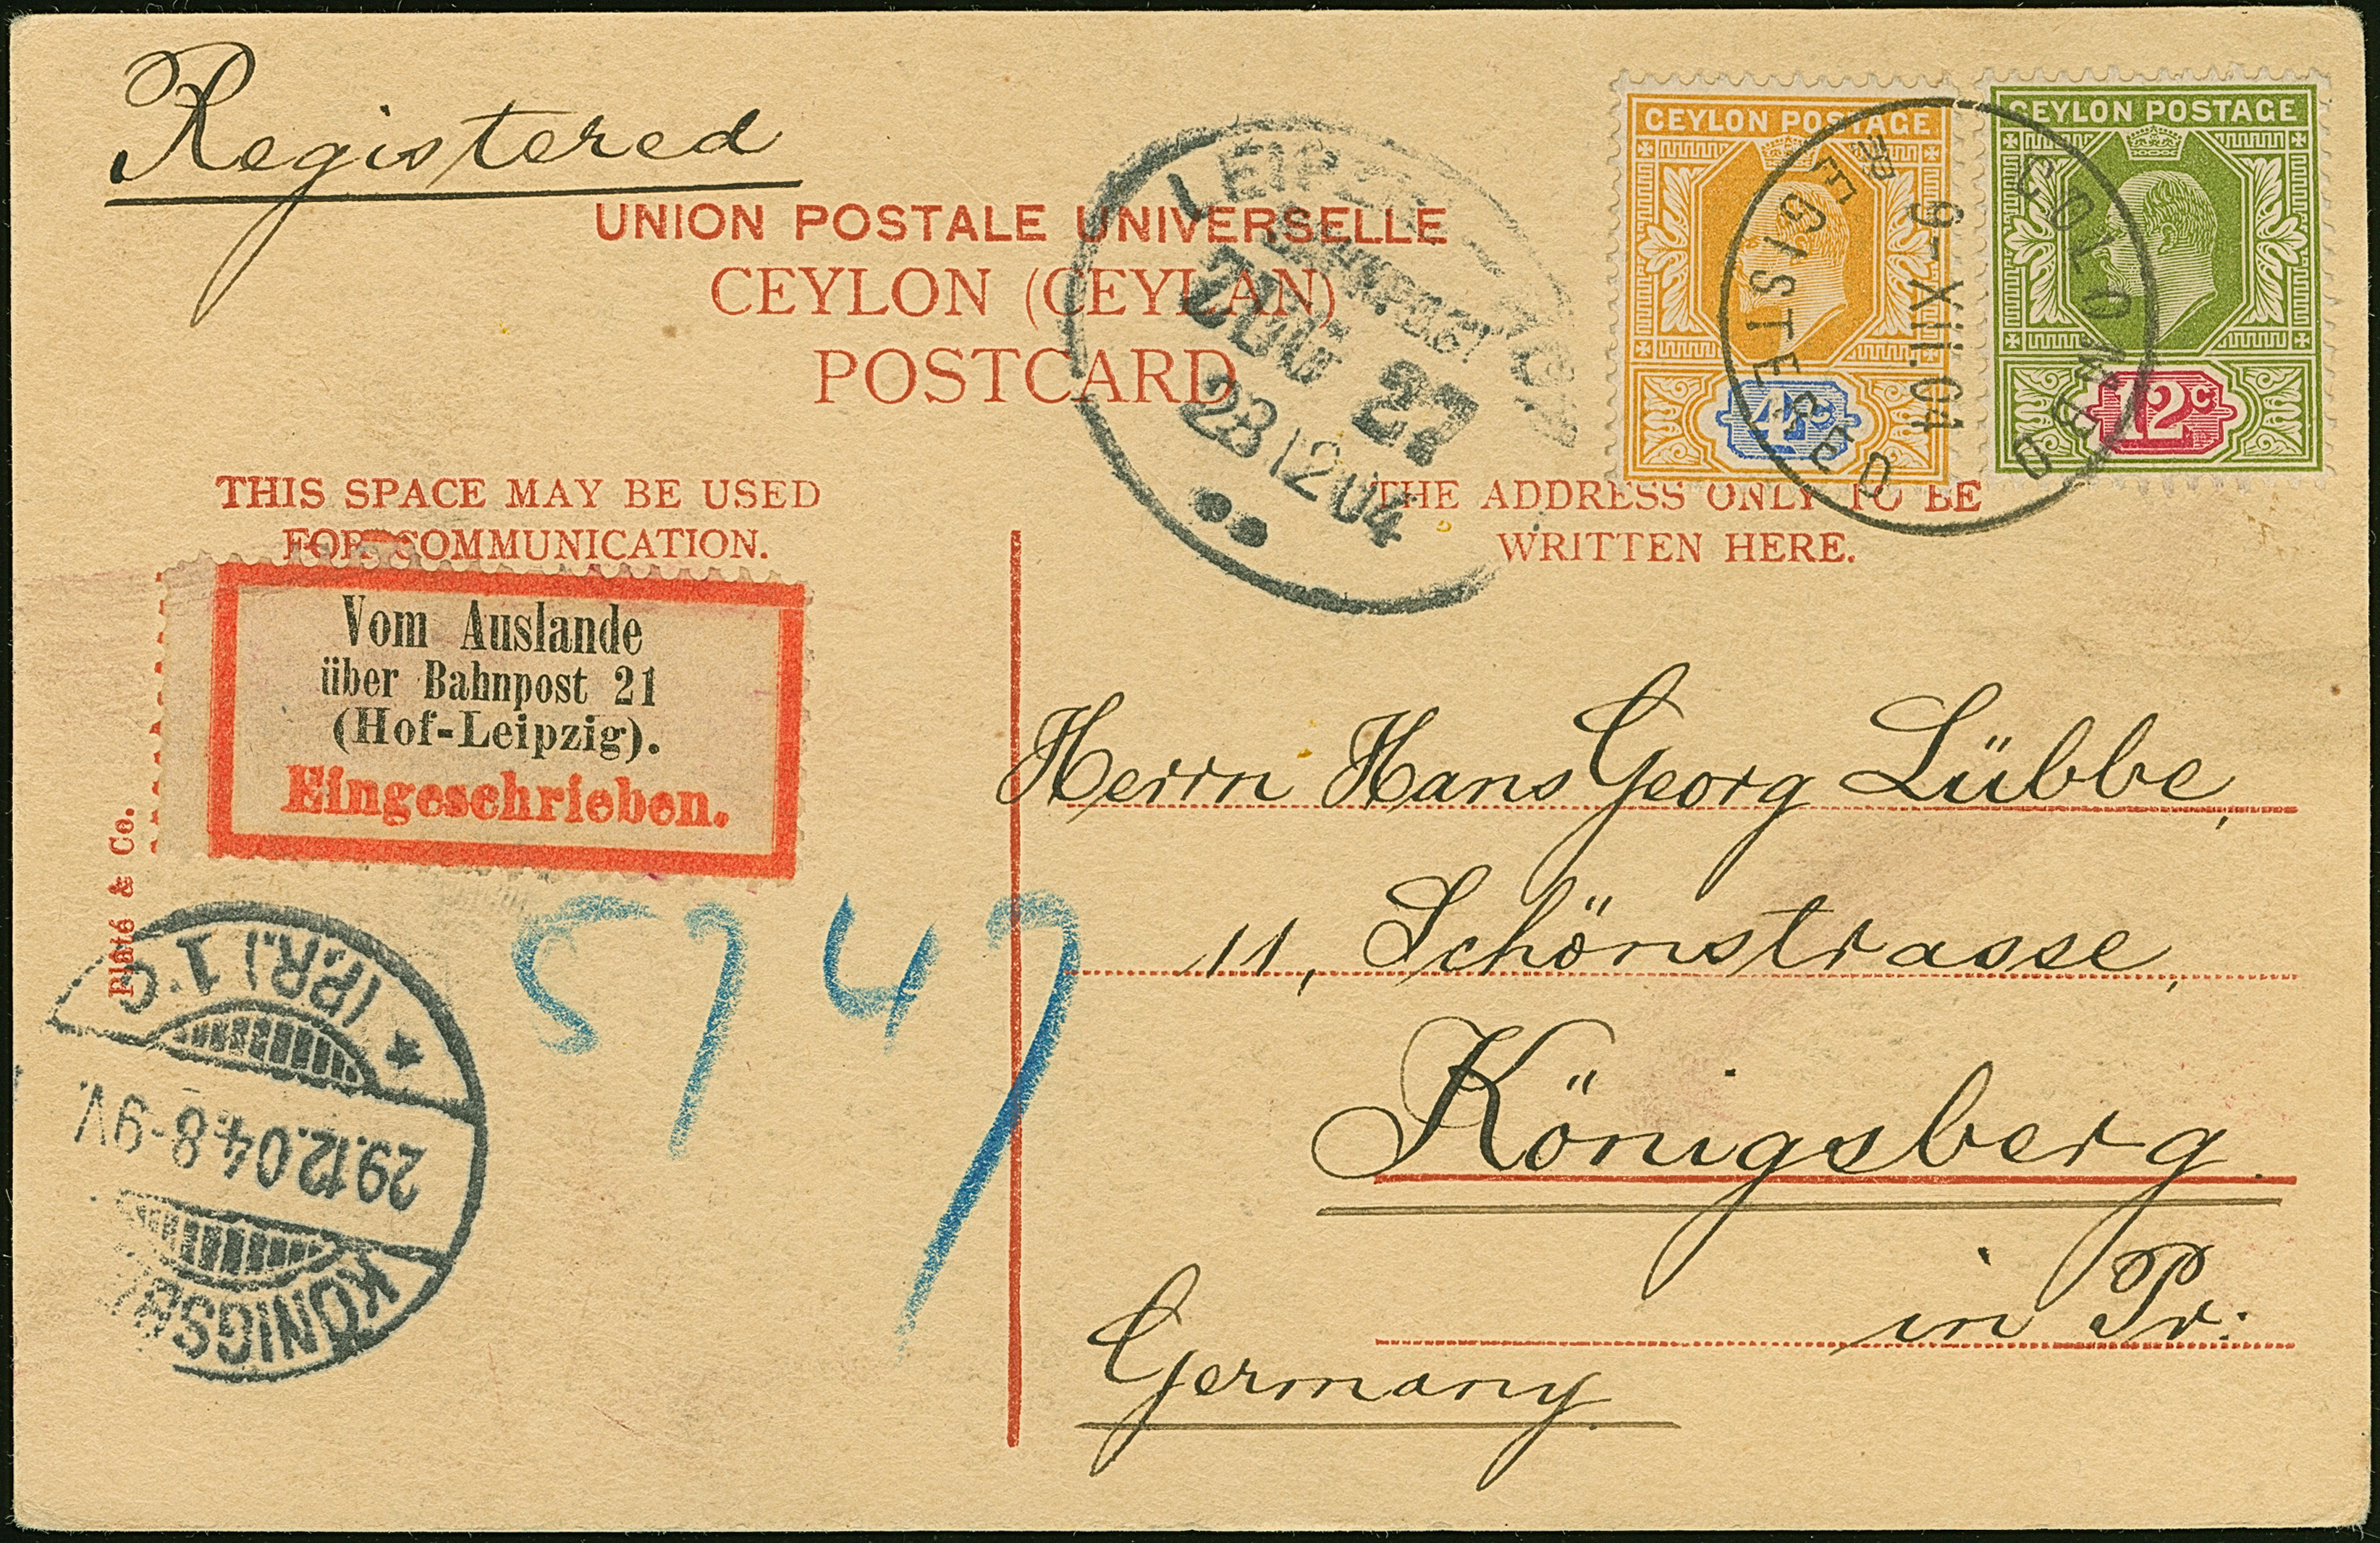 Registered
UNION POSTALE UNIVERSELLE
CEYLON (CEYLAN)
POSTCARD
THIS SPACE MAY BE USED
FOR COMMUNICATION.
THE ADDRESS ONLY TO BE
WRITTEN HERE.
CEYLON POSTAGE
4c
CEYLON POSTAGE
12c
COLOMBO
9-XII.04
REGISTERED
BAHNPOST
ZUG 27
28 12 04
Vom Auslande
über Bahnpost 21
(Hof-Leipzig).
Eingeschrieben.
Plâté & Co.
5747
Herrn Hans Georg Lübbe,
11, Schönstrasse,
Königsberg
in Pr:
Germany.
(PR.) 1 c
29.12.04.8-9V.